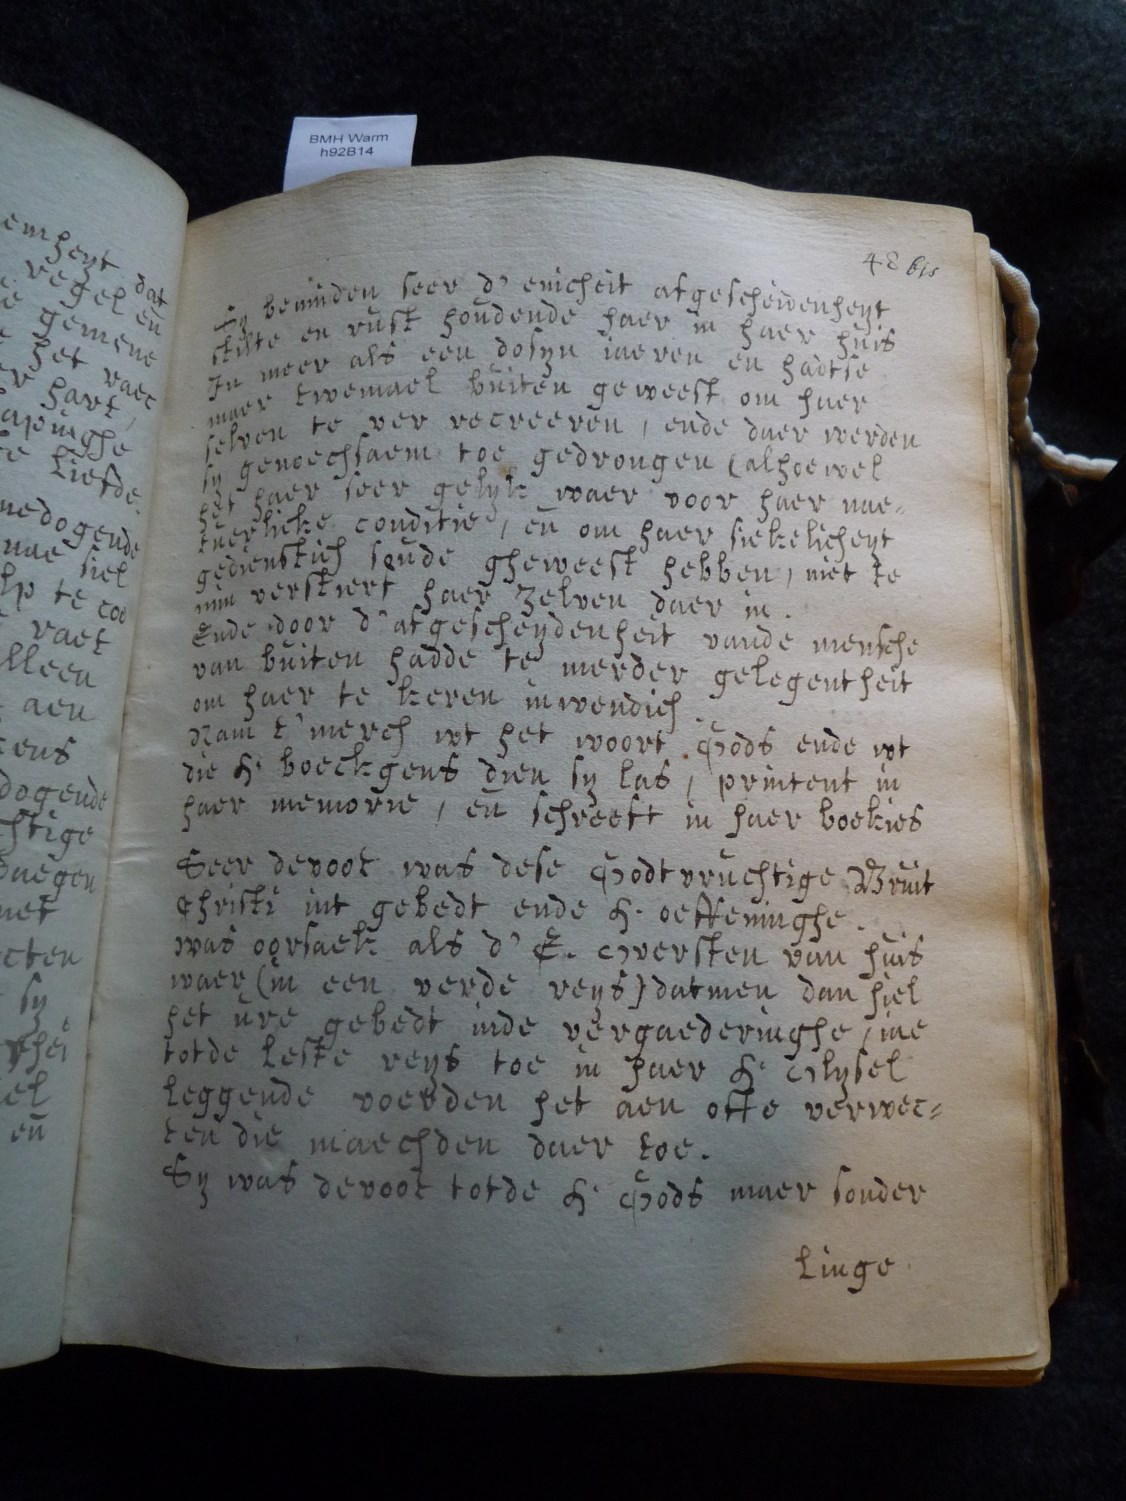 BMH Warm
h92B14
emheyt dat
regel eñ
gemene
het raec
hart,
Liefde.
medogende
siel
lp te coo
raet
lleen
aen
dogende
htige
daegen
met
sy
eñ
48 bis
Sy beminden seer d' enicheit afgescheidenheyt
stilte en rust houdende haer in haer huis
In meer als een dosyn iaeren en hadtse
maer twemael buiten geweest om haer
selven te ver recreeren, ende daer werden
sy genoechsaem toe gedrongen (alhoewel
het haer seer gelyk waer voor haer nae-
tuerlicke conditie, eñ om haer siekelicheyt
gedienstich soude gheweest hebben, niet te
min verstiert haer zelven daer in.
Ende door d' afgescheydenheit vande mensche
van buiten hadde te meerder gelegentheit
om haer te keren inwendich.
Nam t' merch wt het woort Gods ende wt
die H. boeckgens dien sy las, printent in
haer memorie, eñ schreeft in haer boekies
Seer devoot was dese Godtvruchtige Bruit
Christi int gebedt ende H. oeffeninghe.
was oorsaek als d' E. Oversten van huis
waer (in een verde reys) datmen dan hiel
het ure gebedt inde vergaederinghe, iae
totde leste reys toe in haer H. Uytsel
leggende voerden het aen ofte verwec=
ten die maechden daer toe.
Sy was devoot totde H. Gods maer sonder
Linge